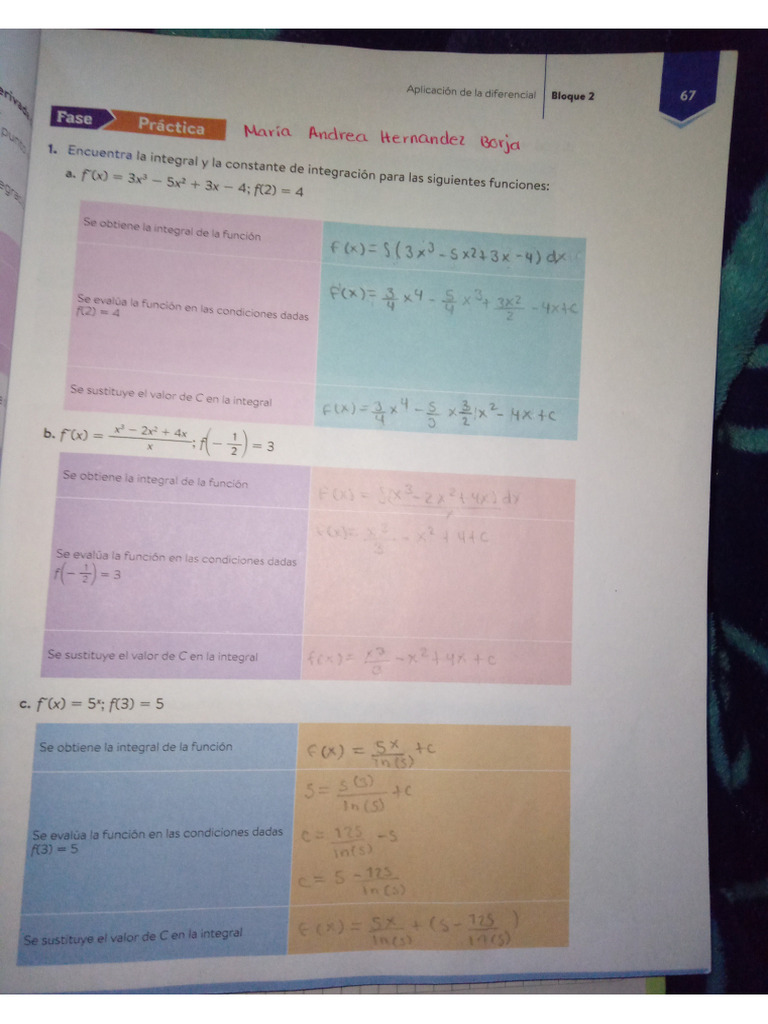 Aplicación de la diferencial Bloque 2 67
Fase Práctica Maria Andrea Hernandez Borja
1. Encuentra la integral y la constante de integración para las siguientes funciones:
a. f'(x) = 3x³ − 5x² + 3x − 4; f(2) = 4
Se obtiene la integral de la función
F(x) = ∫(3x³ - 5x² + 3x - 4) dx
Se evalúa la función en las condiciones dadas
f(2) = 4
F'(x) = 3/4 x⁴ - 5/4 x³ + 3x²/2 - 4x + c
Se sustituye el valor de C en la integral
F(x) = 3/4 x⁴ - 5/3 x 3/2 x² - 4x + c
b. f'(x) = x³ − 2x² + 4x / x ; f(− 1/2) = 3
Se obtiene la integral de la función
F(x) = ∫(x³ - 2x² + 4x) dx / x
Se evalúa la función en las condiciones dadas
f(− 1/2) = 3
F(x) = x²/3 - x² + 4 + c
Se sustituye el valor de C en la integral
F(x) = x³/3 - x² + 4x + c
c. f'(x) = 5ˣ; f(3) = 5
Se obtiene la integral de la función
F(x) = 5x/ln(5) + c
Se evalúa la función en las condiciones dadas
f(3) = 5
5 = 5(5)/ln(5) + c
c = 125/ln(5) - 5
c = 5 - 125/ln(5)
Se sustituye el valor de C en la integral
F(x) = 5x/ln(5) + (5 - 125/ln(5))